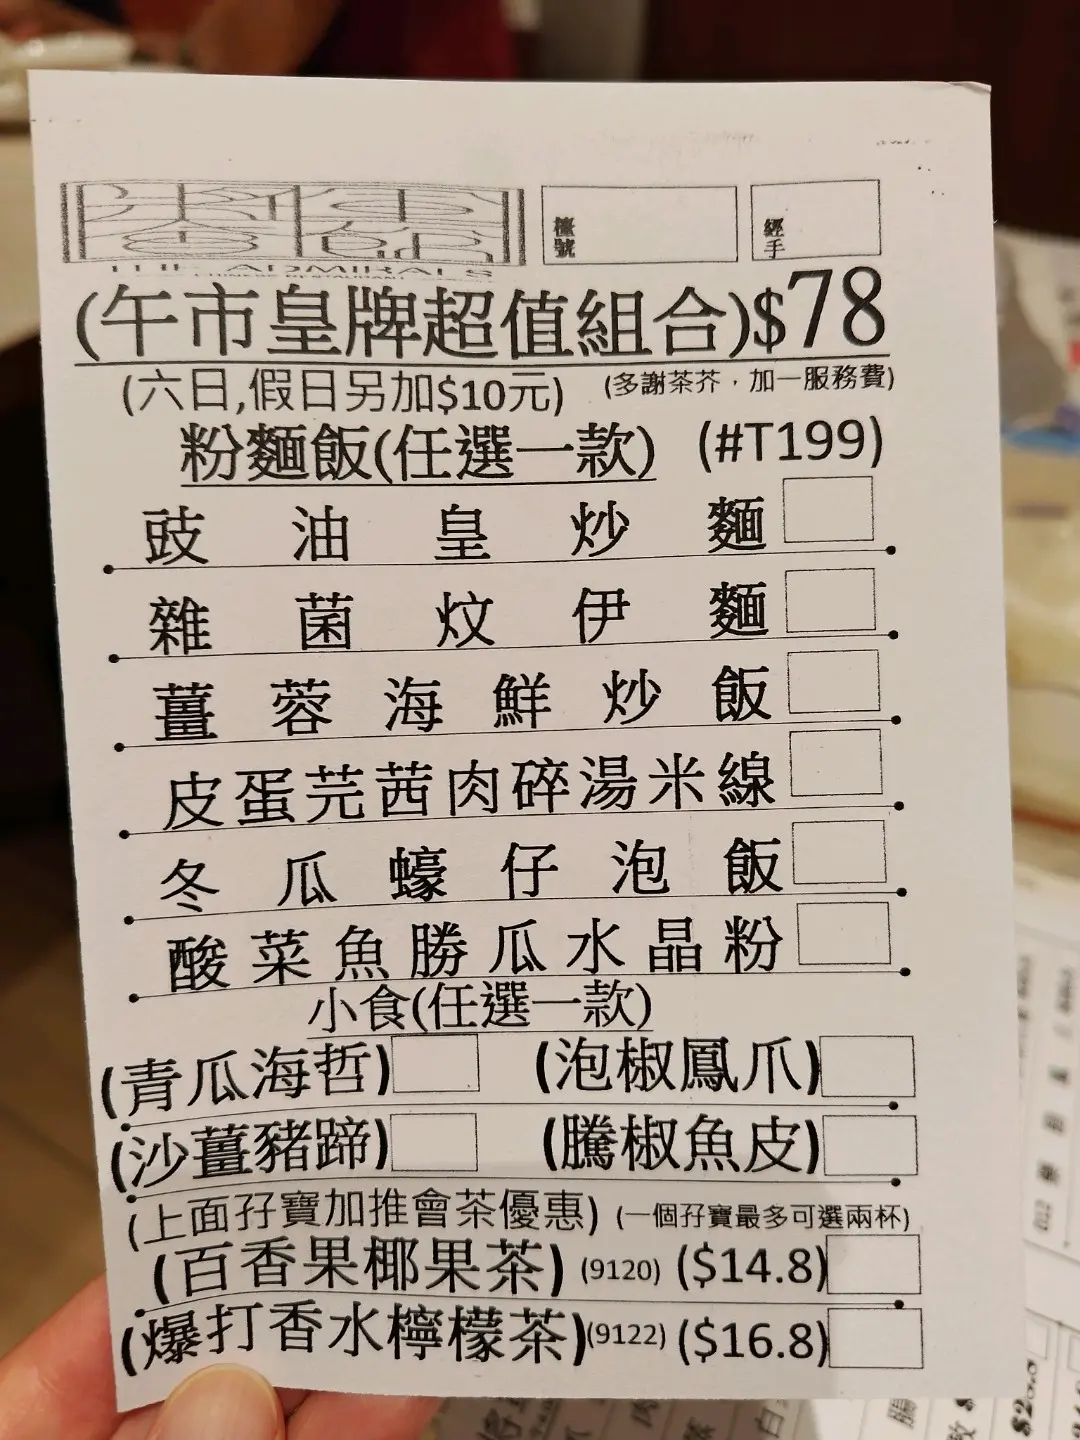 THE ADMIRALS
檯號
經手
(午市皇牌超值組合)$78
(六日,假日另加$10元) (多謝茶芥，加一服務費)
粉麵飯(任選一款) (#T199)
豉油皇炒麵
雜菌炆伊麵
薑蓉海鮮炒飯
皮蛋芫茜肉碎湯米線
冬瓜蠔仔泡飯
酸菜魚勝瓜水晶粉
小食(任選一款)
(青瓜海哲) (泡椒鳳爪)
(沙薑豬蹄) (騰椒魚皮)
(上面孖寶加推會茶優惠) (一個孖寶最多可選兩杯)
(百香果椰果茶) (9120) ($14.8)
(爆打香水檸檬茶)(9122) ($16.8)